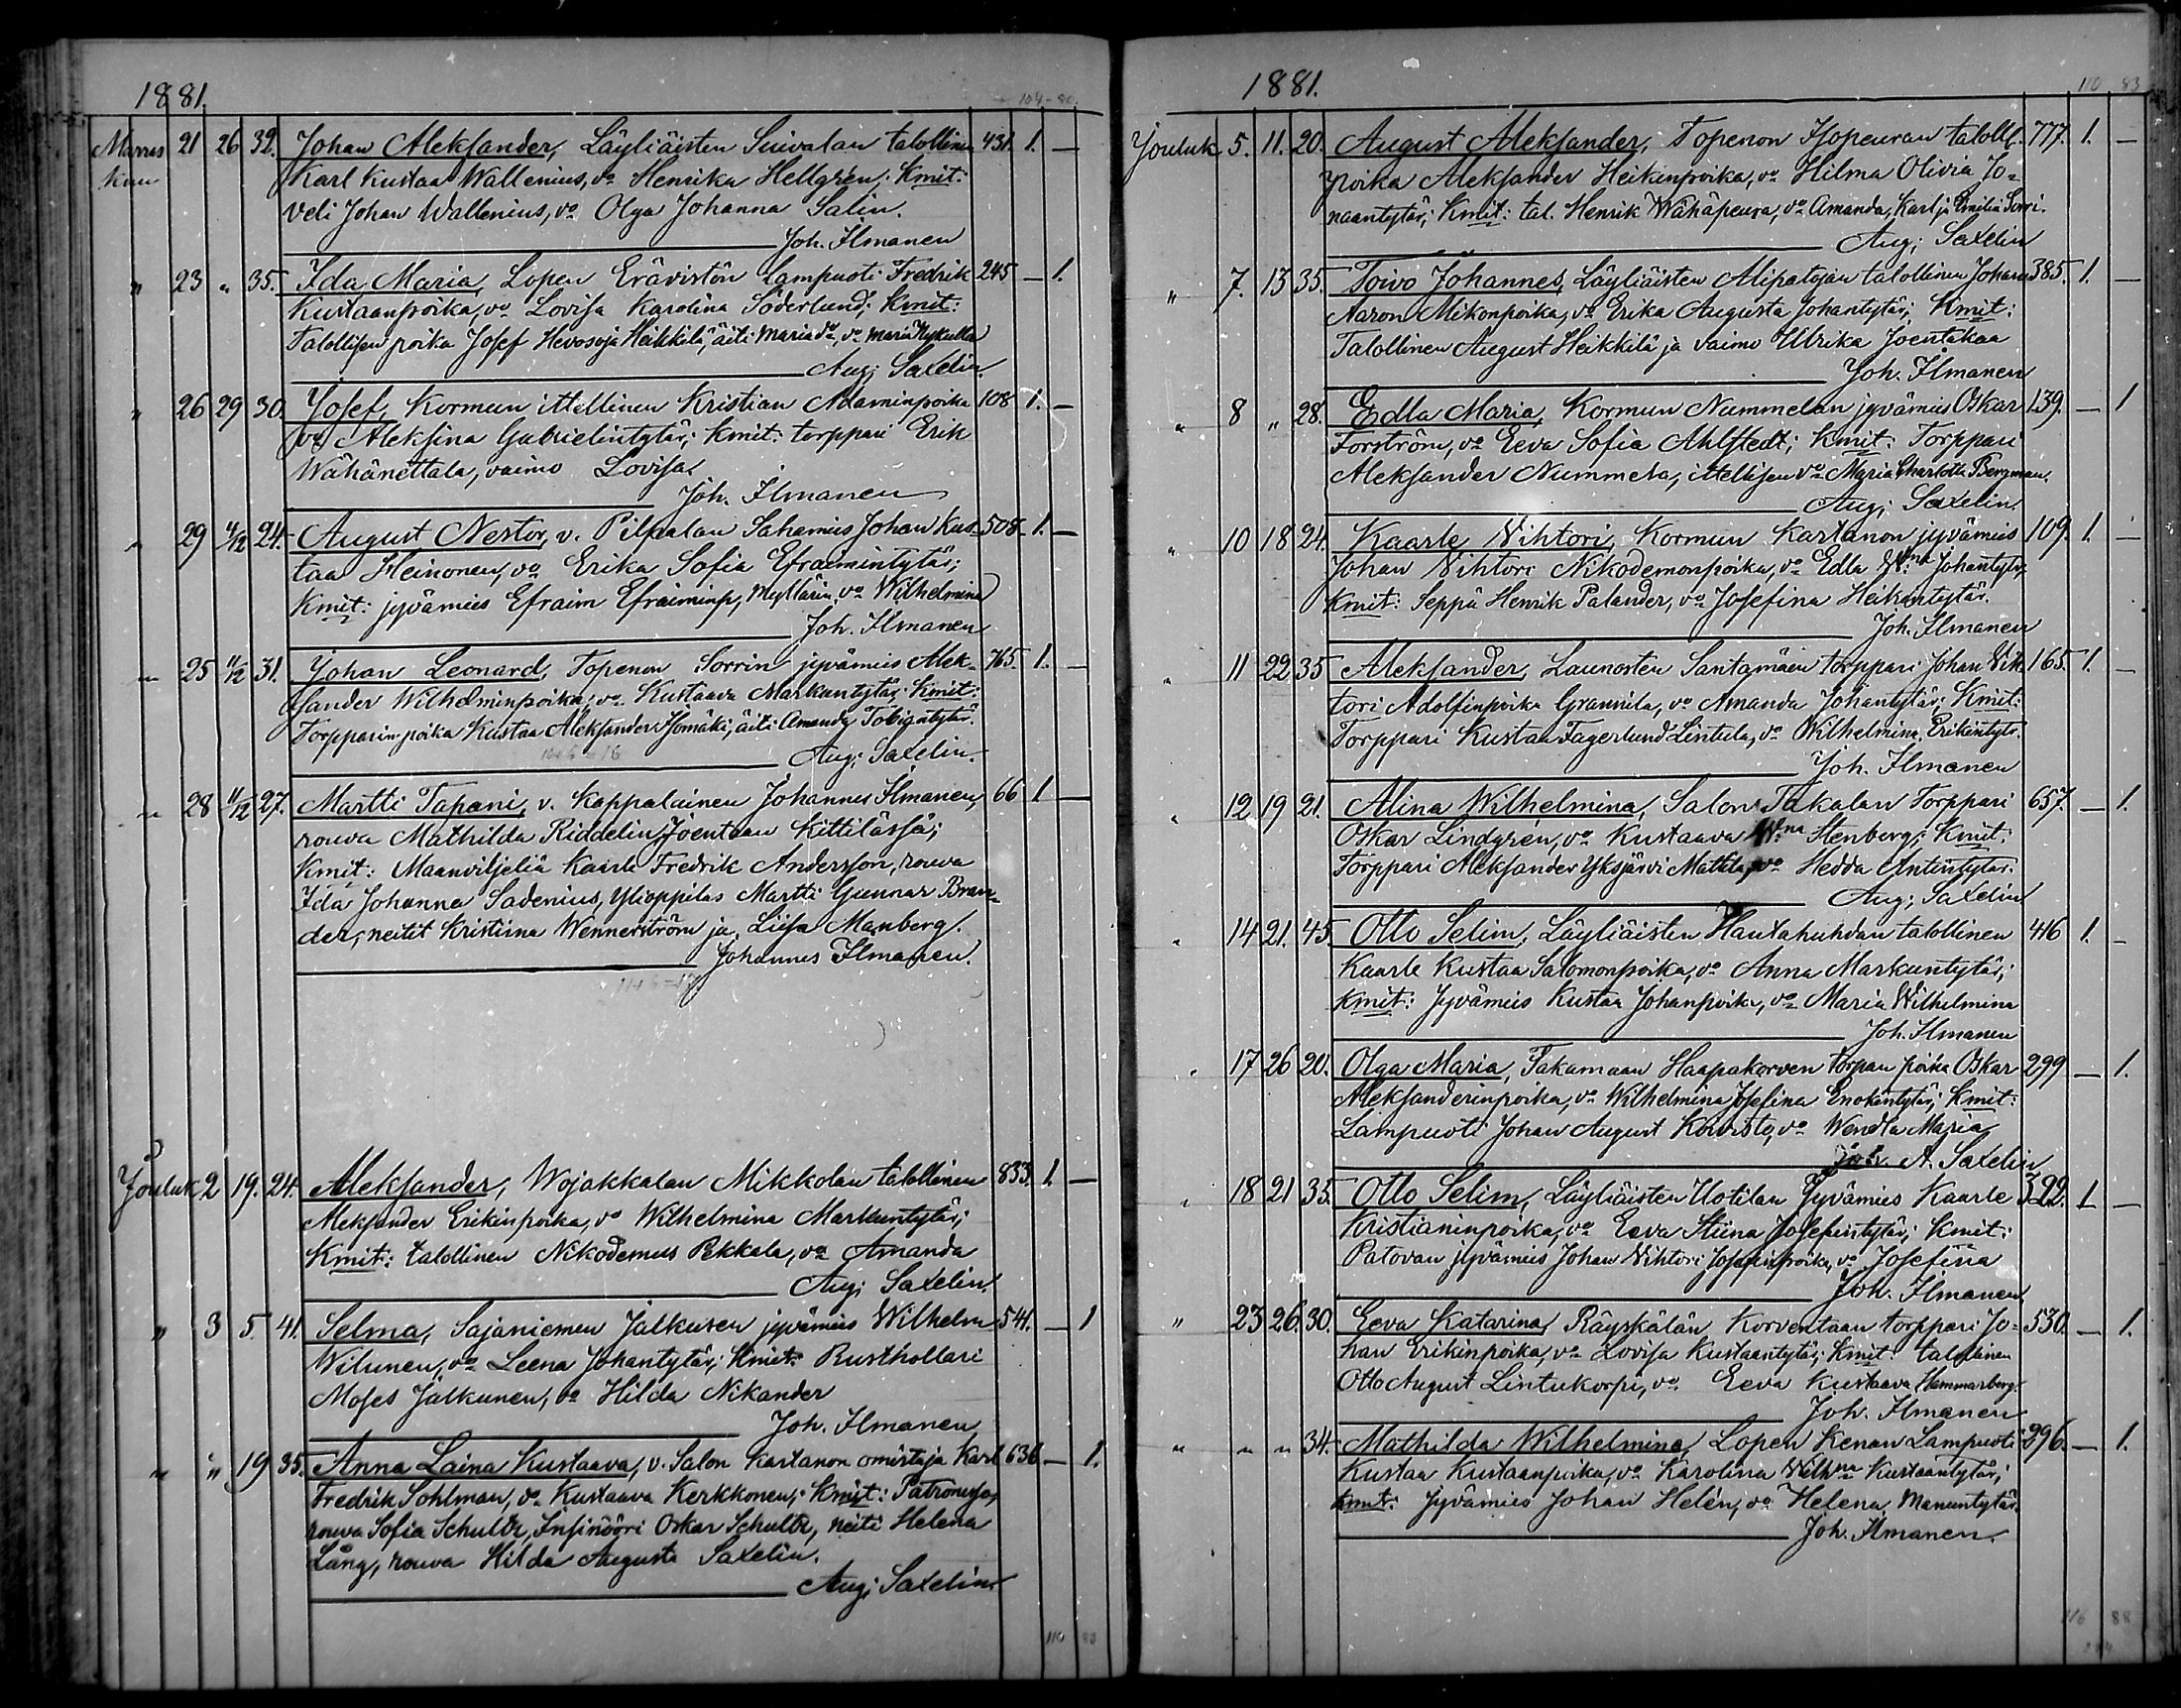 1881.
104-80.
Marras 21 26 32. Johan Aleksander, Läyliäisten Suivalan talollinen 431. 1. —
kuu Karl Kustaa Wallenius, vo Henrika Hellgrén; Kmit:
veli Johan Wallenius, vo Olga Johanna Salin.
Joh. Ilmanen
" 23 " 35. Ida Maria, Lopen Erävistön Lampuoti Fredrik 245 — 1.
Kustaanpoika, vo Lovisa Karolina Söderlund; Kmit:
Talollisen poika Josef Hevosoja Heikkilä, äiti Maria
Aug; Saxelin.
" 26 29 30. Josef, Kormun ittellinen Kristian Adaminpoika 108 1. —
vo Aleksina Gabrielintytär; Kmit: torppari Erik
Wähänettala, vaimo Lovisa
Joh. Ilmanen
" 29 4/12 24. August Nestor, v. Pilpalan Sahamies Johan Kus- 508. 1. —
taa Heinonen, vo Erika Sofia Efraimintytär;
Kmit: jyvämies Efraim Efraiminp, Myllärin vo Wilhelmina
Joh. Ilmanen
" 25 11/12 31. Johan Leonard, Topenon Sorrin jyvämies Alek- 765. 1. —
sander Wilhelminpoika, vo Kustaava Markuntytär; Kmit:
Torpparin poika Kustaa Aleksander Isomäki, äiti Amanda Tobiantytär.
Aug; Saxelin.
" 28 11/12 27. Martti Tapani, v. Kappalainen Johannes Ilmanen, 66 1 —
rouva Mathilda Riddelin, Joentaan Kittilässä;
Kmit: Maanviljeliä Kaarle Fredrik Andersson, rouva
Ida Johanna Sadenius, Ylioppilas Martti Gunnar Bran-
der, neitit Kristiina Wennerström ja Liisa Manberg.
Johannes Ilmanen.
Jouluk 2 19. 24. Aleksander, Wojakkalan Mikkolan talollinen 833. 1. —
Aleksander Erikinpoika, vo Wilhelmina Markuntytär;
Kmit: talollinen Nikodemus Pekkala, vo Amanda
Aug; Saxelin.
" 3 5. 41. Selma, Sajaniemen Jalkusen jyvämies Wilhelm 541. — 1
Wilunen, vo Leena Johantytär; Kmit: Rusthollari
Moses Jalkunen, vo Hilda Nikander
Joh. Ilmanen
" " 19 35. Anna Laina Kustaava, v. Salon Kartanon omistaja Karl 636 — 1.
Fredrik Sohlman, vo Kustaava Kerkkonen; Kmit: Patronessa,
rouva Sofia Schultz, Insinööri Oskar Schultz, neiti Helena
Lång, rouva Hilda Augusta Saxelin.
Aug; Saxelin
110 83
1881.
110 83
Jouluk 5. 11. 20. August Aleksander, Topenon Isopeuran taloll. 777. 1. —
poika Aleksander Heikinpoika, vo Hilma Olivia Jo-
naantytär; Kmit: tal. Henrik Wähäpeura, vo Amanda, Karl ja Emilia Sorri.
Aug; Saxelin
" 7. 13 35. Toivo Johannes, Läyliäisten Alipatojan talollinen Johan 385. 1. —
Aaron Mikonpoika, vo Erika Augusta Johantytär; Kmit:
Talollinen August Heikkilä ja vaimo Ulrika Joentakaa
Joh. Ilmanen
" 8 " 28. Edla Maria, Kormun Nummelan jyvämies Oskar 139. — 1
Forström, vo Eeva Sofia Ahlstedt; Kmit: Torppari
Aleksander Nummela, ittellisen vo Maria Charlotta Bergman.
Aug; Saxelin.
" 10 18 24. Kaarle Vihtori, Kormun Kartanon jyvämies 109. 1. —
Johan Vihtori Nikodemonpoika, vo Edla W:na Johantytr,
Kmit: Seppä Henrik Palander, vo Josefina Heikintytär.
Joh. Ilmanen
" 11 22 35 Aleksander, Launosten Santamäen torppari Johan Vik 165. 1. —
tori Adolfinpoika Grannila, vo Amanda Johantytär; Kmit:
Torppari Kustaa Fagerlund Lintula, vo Wilhelmina Erikintytr.
Joh. Ilmanen
" 12 19 21. Alina Wilhelmina, Salon Takalan Torppari 657. — 1.
Oskar Lindgrén, vo Kustaava W:na Stenberg; Kmit:
Torppari Aleksander Yksjärvi Mattila, vo Hedda Antintytar.
Aug; Saxelin
" 14 21. 45. Otto Selim, Läyliäisten Hautahuhdan talollinen 416 1. —
Kaarle Kustaa Salomonpoika, vo Anna Markuntytär;
Kmit: Jyvämies Kustaa Johanpoika, vo Maria Wilhelmina
Joh. Ilmanen
" 17 26 20. Olga Maria, Takamaan Haapakorven torpan poika Oskar 299 — 1.
Aleksanderinpoika, vo Wilhelmina Josefina Enokintytär; Kmit:
Lampuoti Johan August Koivisto, vo Wendla Maria
A. Saxelin
" 18 21 35. Otto Selim, Läyliäisten Uotilan Jyvämies Kaarle 322. 1 —
Kristianinpoika, vo Eeva Stiina Josefintytär; Kmit:
Patovan jyvämies Johan Vihtori Josefinpoika, vo Josefina
Joh. Ilmanen
" 23 26. 30. Eeva Katarina, Räyskälän Korventaan torppari Jo- 530. — 1.
han Erikinpoika, vo Lovisa Kustaantytär; Kmit: talollinen
Otto August Lintukorpi, vo Eeva Kustaava Hammarberg.
Joh. Ilmanen
" " " 34. Mathilda Wilhelmina, Lopen Kenan Lampuoti 296. — 1.
Kustaa Kustaanpoika, vo Karolina Wilhna Kustaantytär;
Kmit: Jyvämies Johan Helén, vo Helena Manuntytär.
Joh. Ilmanen.
116 88